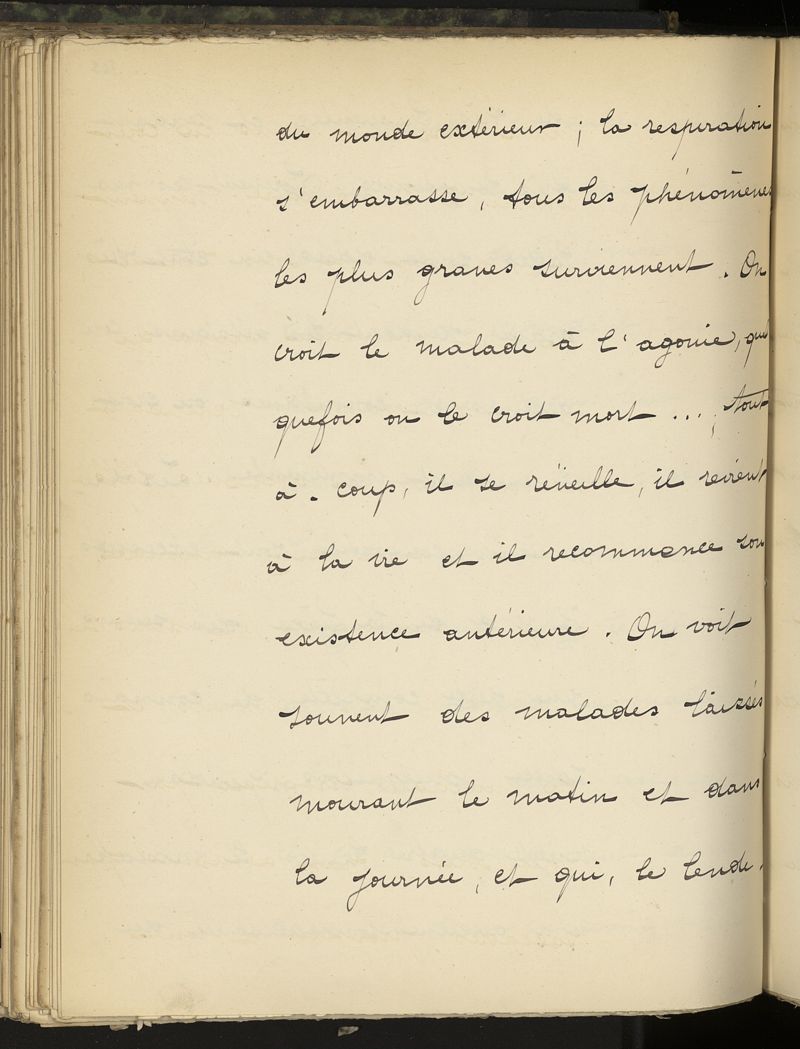 du monde extérieur ; la respiration
s'embarrasse, tous les phénomènes
les plus graves surviennent. On
croit le malade à l'agonie, quel
quefois on le croit mort ... ; tout
à - coup, il se réveille, il revient
à la vie et il recommence son
existence antérieure. On voit
souvent des malades laissés
mourant le matin et dans
la journée, et qui, le lende-